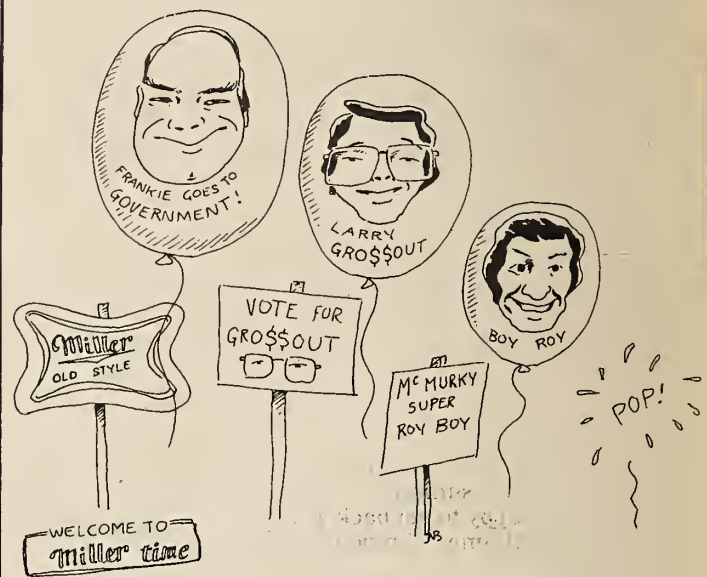 FRANKIE GOES TO
GOVERNMENT!
LARRY
GRO$$OUT
BOY ROY
Miller
OLD STYLE
VOTE FOR
GRO$$OUT
Mc MURKY
SUPER
ROY BOY
POP!
NB
WELCOME TO
Miller time